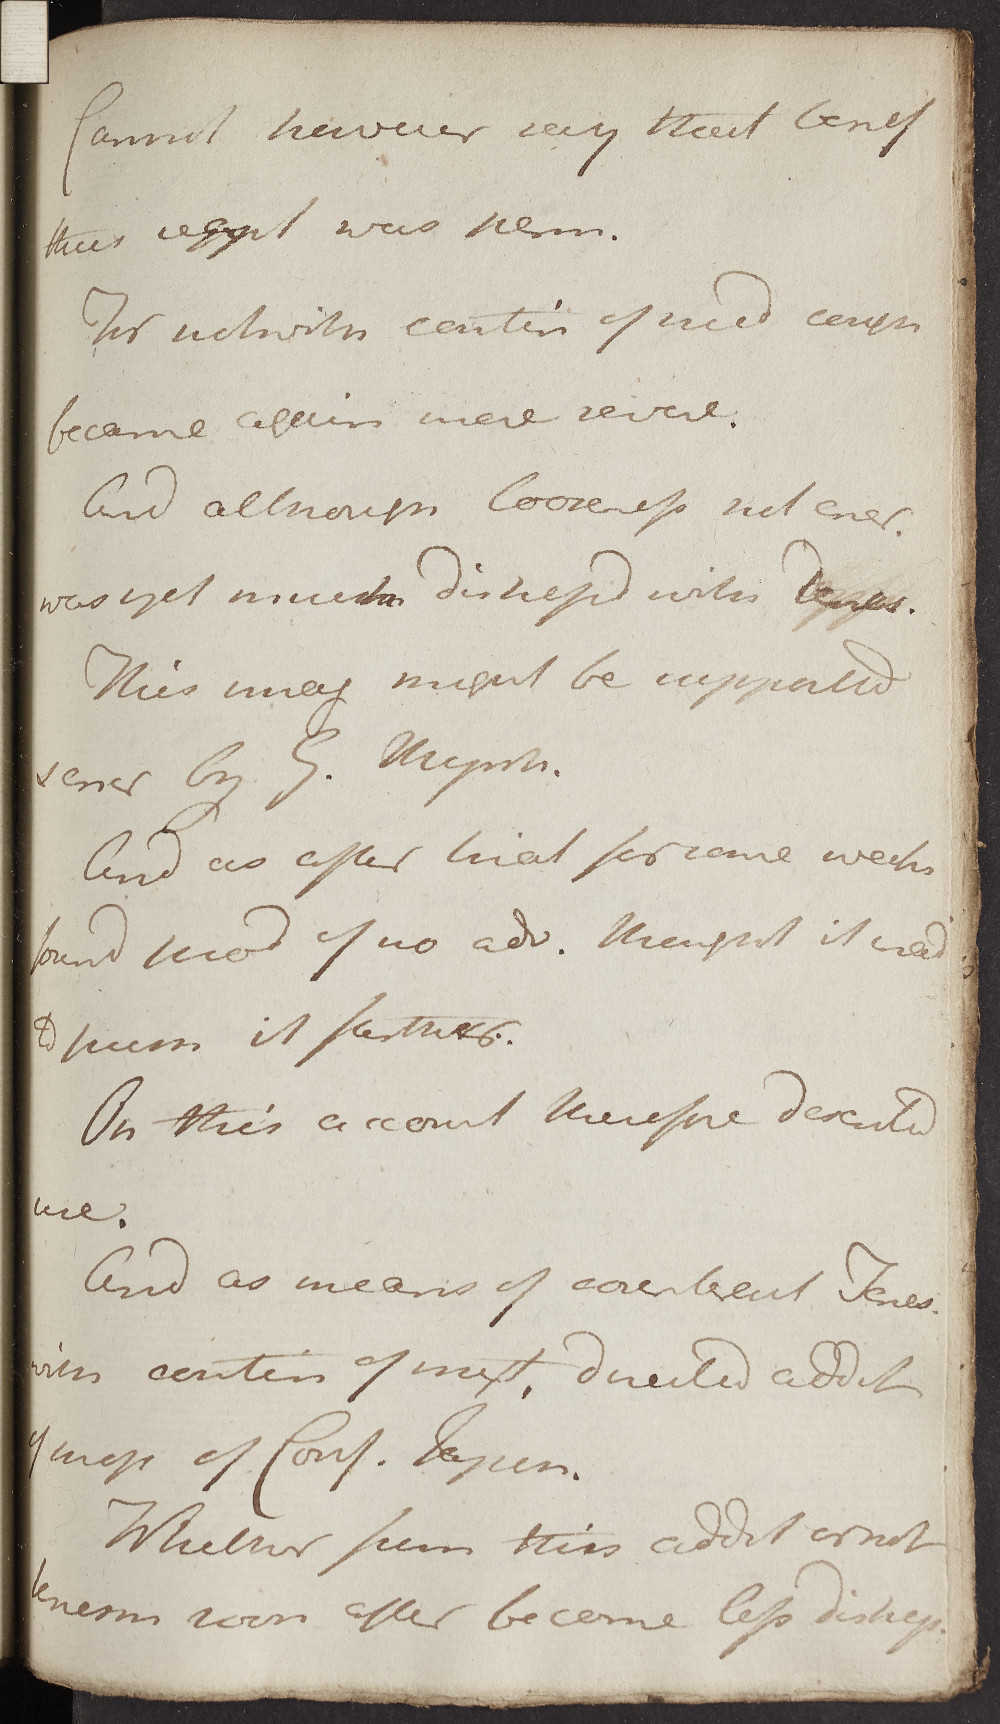 Cannot however say that benef
thus was perm.
For notwith contin of med cough
became again more severe.
And although looseness not encr.
was yet much distressd with
This may might be supported
encr by G. Myrrh.
And as after trial for some weeks
found med of no adv. thought it need
to push it farther.
On this account therefore deserted
use.
And as means of counteract Tenes.
with contin of mixt, directed addit
of Conf. Japon.
Whether from this addit or not
tenesm soon after became less distress.